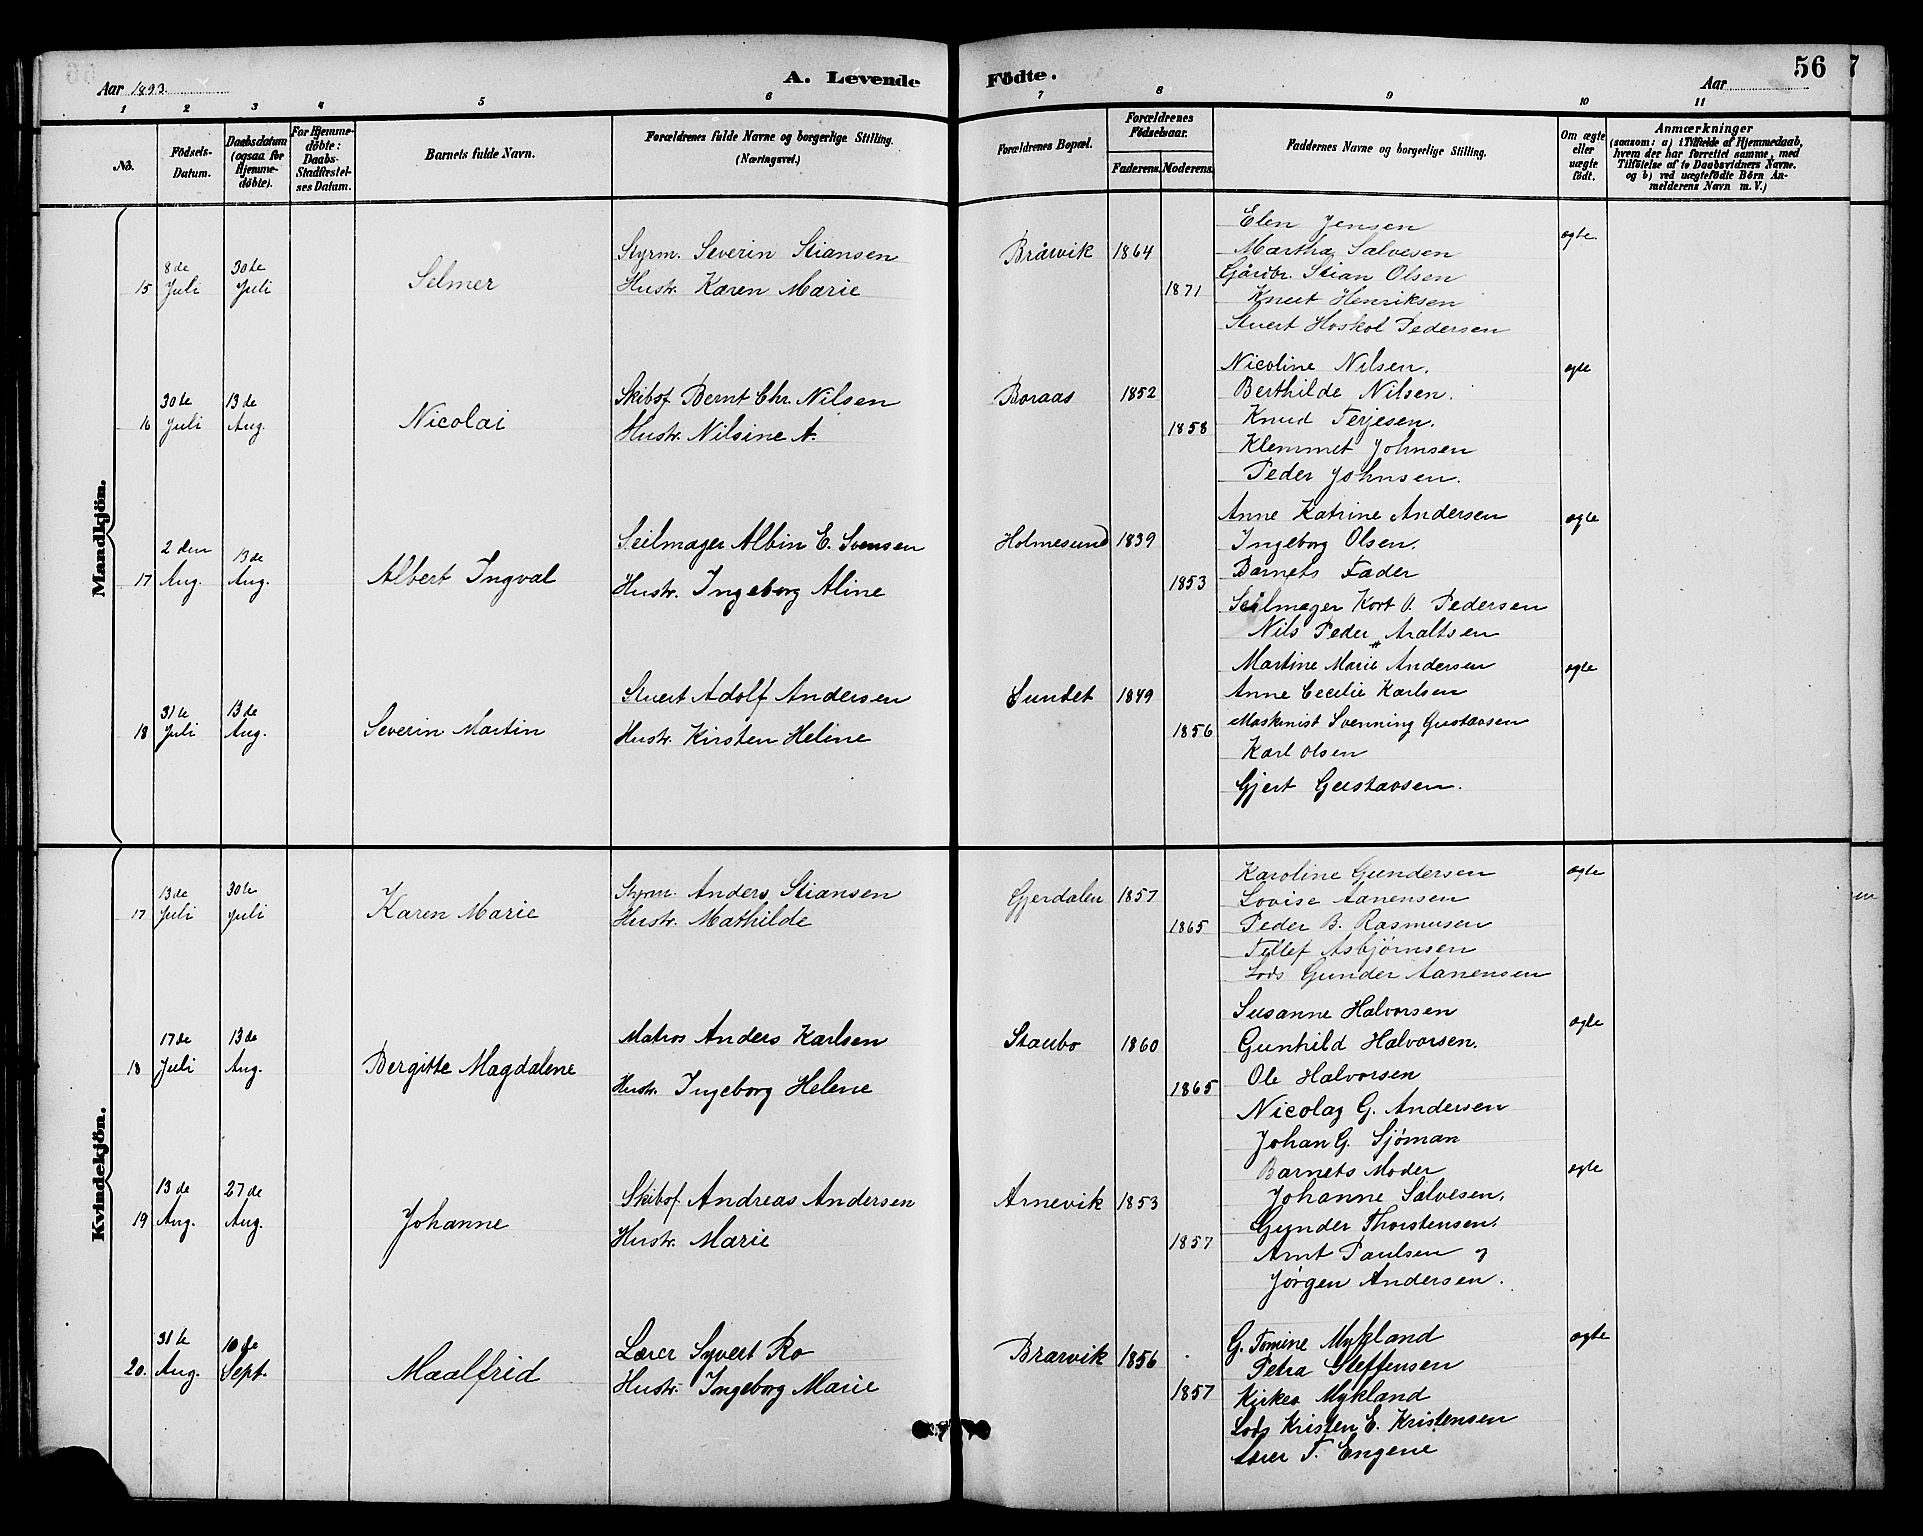 Aar 1893
A. Levende Fødte.
Aar
56
1 2 3 4 5 6 7 8 9 10 11
No.
Fødsels-Datum.
Daabsdatum (ogsaa for Hjemmedøbte).
For Hjemmedøbte: Daabs-Stadfæstelses Datum.
Barnets fulde Navn.
Forældrenes fulde Navne og borgerlige Stilling. (Næringsvei.)
Forældrenes Bopæl.
Forældrenes Fødselsaar.
Faderens. Moderens.
Faddernes Navne og borgerlige Stilling.
Om ægte eller uægte født.
Anmærkninger
(saasom: a) i Tilfælde af Hjemmedaab, hvem der har forrettet samme, med Tilføielse af to Daabsvidners Navne. og b) ved uægtefødte Børn Anmelderens Navn m. V.)
Mandkjön.
15 8de Juli 30te Juli Selmer
Styrm. Severin Stiansen
Hustr. Karen Marie
Bråvik 1864 1871
Elen Jensen
Martha Salvesen
Gårdbr. Stian Olsen
Knut Henriksen
Stuert Hoskol Pedersen
ægte
16 30te Juli 13de Aug. Nicolai
Skibsf. Bernt Chr. Nilsen
Hustr. Nilsine A.
Boraas 1852 1858
Nicoline Nilsen.
Berthilde Nilsen.
Knud Terjesen.
Klemmet Johnsen
Peder Johnsen.
ægte
17 2den Aug. 13de Aug. Albert Ingval
Seilmager Albin E. Svensen
Hustr. Ingeborg Aline
Holmesund 1839 1853
Anne Katrine Andersen
Ingeborg Olsen.
Barnets Fader
Seilmager Kort O. Pedersen
Nils Peder Araltsen
ægte
18 31te Juli 13de Aug. Severin Martin
Stuert Adolf Andersen
Hustr. Kirsten Heline
Sundet 1849 1856
Martine Marie Andersen
Anne Cecilie Karlsen
Maskinist Svenning Gustavsen
Karl Olsen
Gjert Gustavsen.
ægte
Kvindekjön.
17 13de Juli 30te Juli Karen Marie
Styrm. Anders Stiansen
Hustr. Mathilde
Gjerdalen 1857 1865
Karoline Gundersen
Lovise Aanensen
Peder B. Rasmusen
Tellef Asbjørnsen
Lods Gunder Aanensen
ægte
18 17de Juli 13de Aug. Bergitte Magdalene
Matros Anders Karlsen
Hustr. Ingeborg Helene
Staubo 1860 1865
Susanne Halvorsen
Gunhild Halvorsen.
Ole Halvorsen
Nicolay G. Andersen
Johan G. Sjøman
ægte
19 13de Aug. 27de Aug. Johanne
Skibsf. Andreas Andersen
Hustr. Marie
Arnevik 1853 1857
Barnets Moder
Johanne Salvesen.
Gunder Thorstensen.
Arnt Paulsen og
Jørgen Andersen.
ægte
20. 31te Aug. 10de Sept. Maalfrid
Lærer Syvert Ro
Hustr. Ingeborg Marie
Brarvik 1856 1857
G. Tomine Mykland
Petra Steffensen
Mykland
Lods Kristen E. Kristensen
Lærer T. Engene
ægte